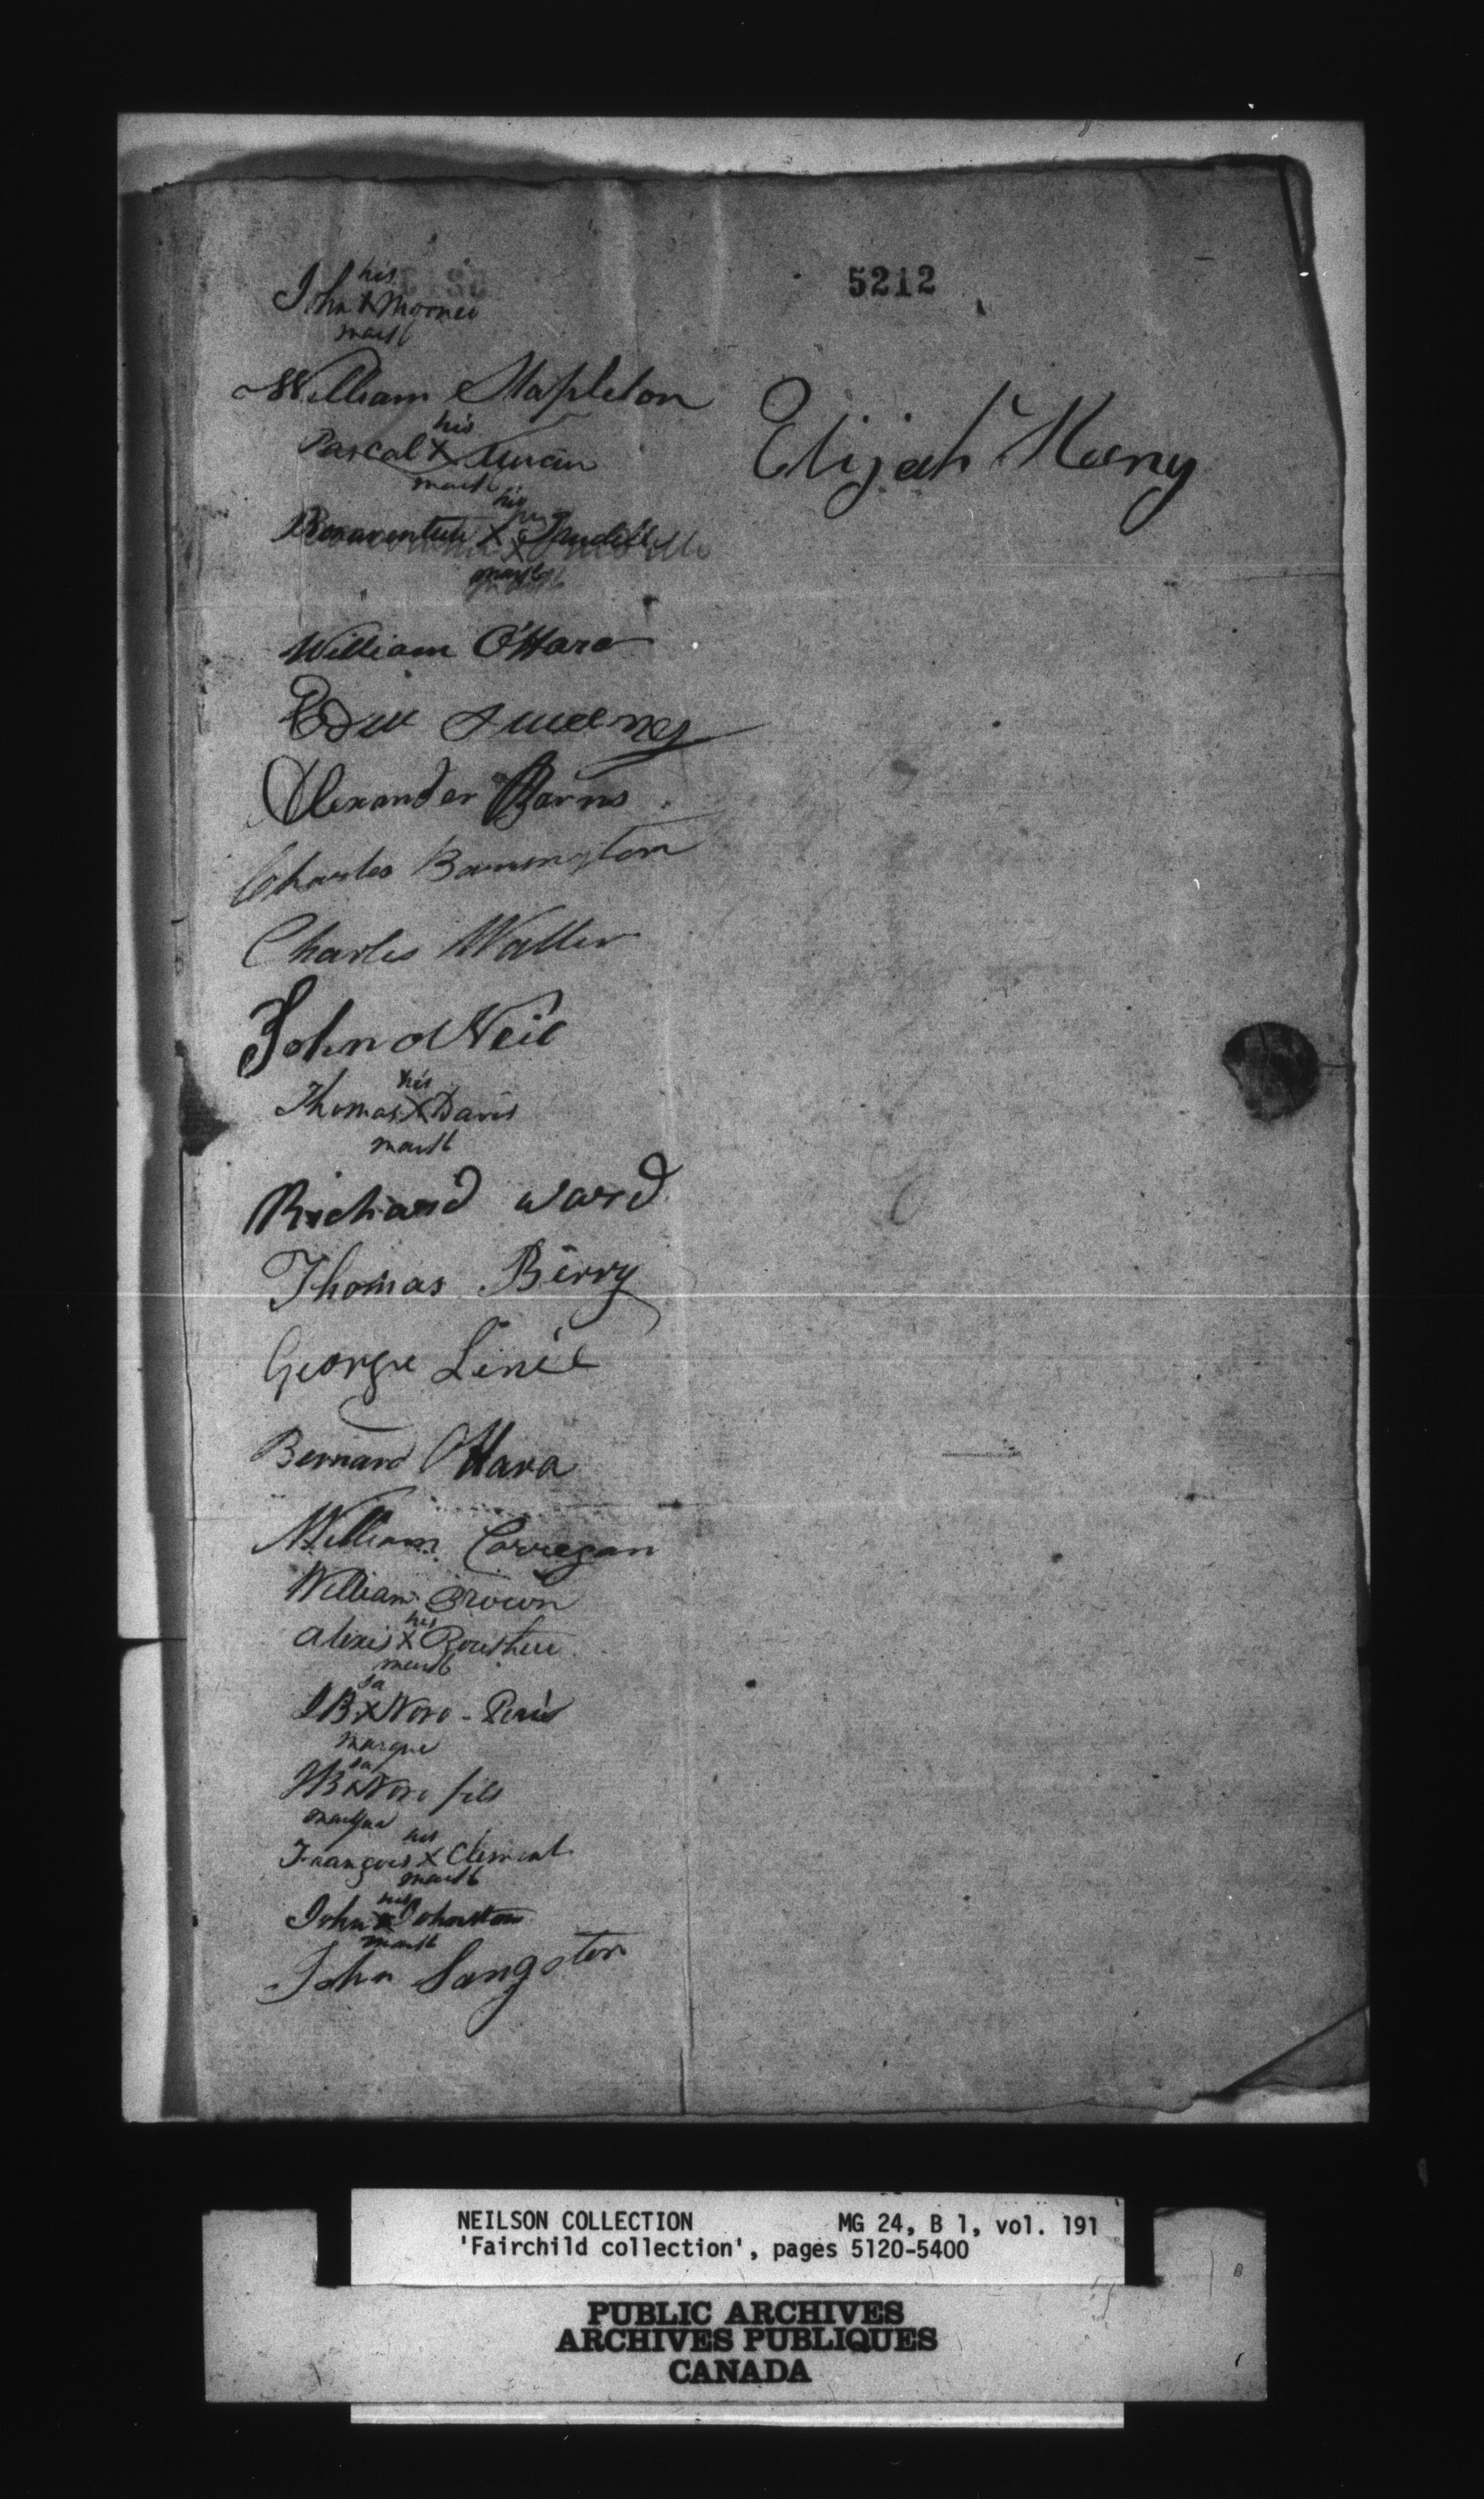 5212
his
John X Mooner
mark
William Stapleton
Elijah Keeny
his
Pascal X
mark
his
Bonaventure X
mark
William O'Hara
Edw Sweeney
Alexander Barns
Charles Bannington
Charles Waller
John oNeil
his
Thomas X Davis
mark
Richard ward
Thomas Berry
George Linée
Bernard OHara
William Corregan
William Brown
his
Alexis X
mark
sa
JB X Noro - Peré
marque
sa
JB X Noro fils
marque
his
François X Clement
mark
his
John X Johnston
mark
John Sangster
NEILSON COLLECTION MG 24, B 1, vol. 191
'Fairchild collection', pages 5120-5400
PUBLIC ARCHIVES
ARCHIVES PUBLIQUES
CANADA